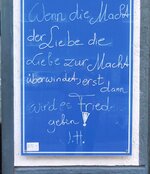 Wenn die Macht
der Liebe die
Liebe zur Macht
überwindet, erst
dann
wird es Frieden
geben!
J.H.